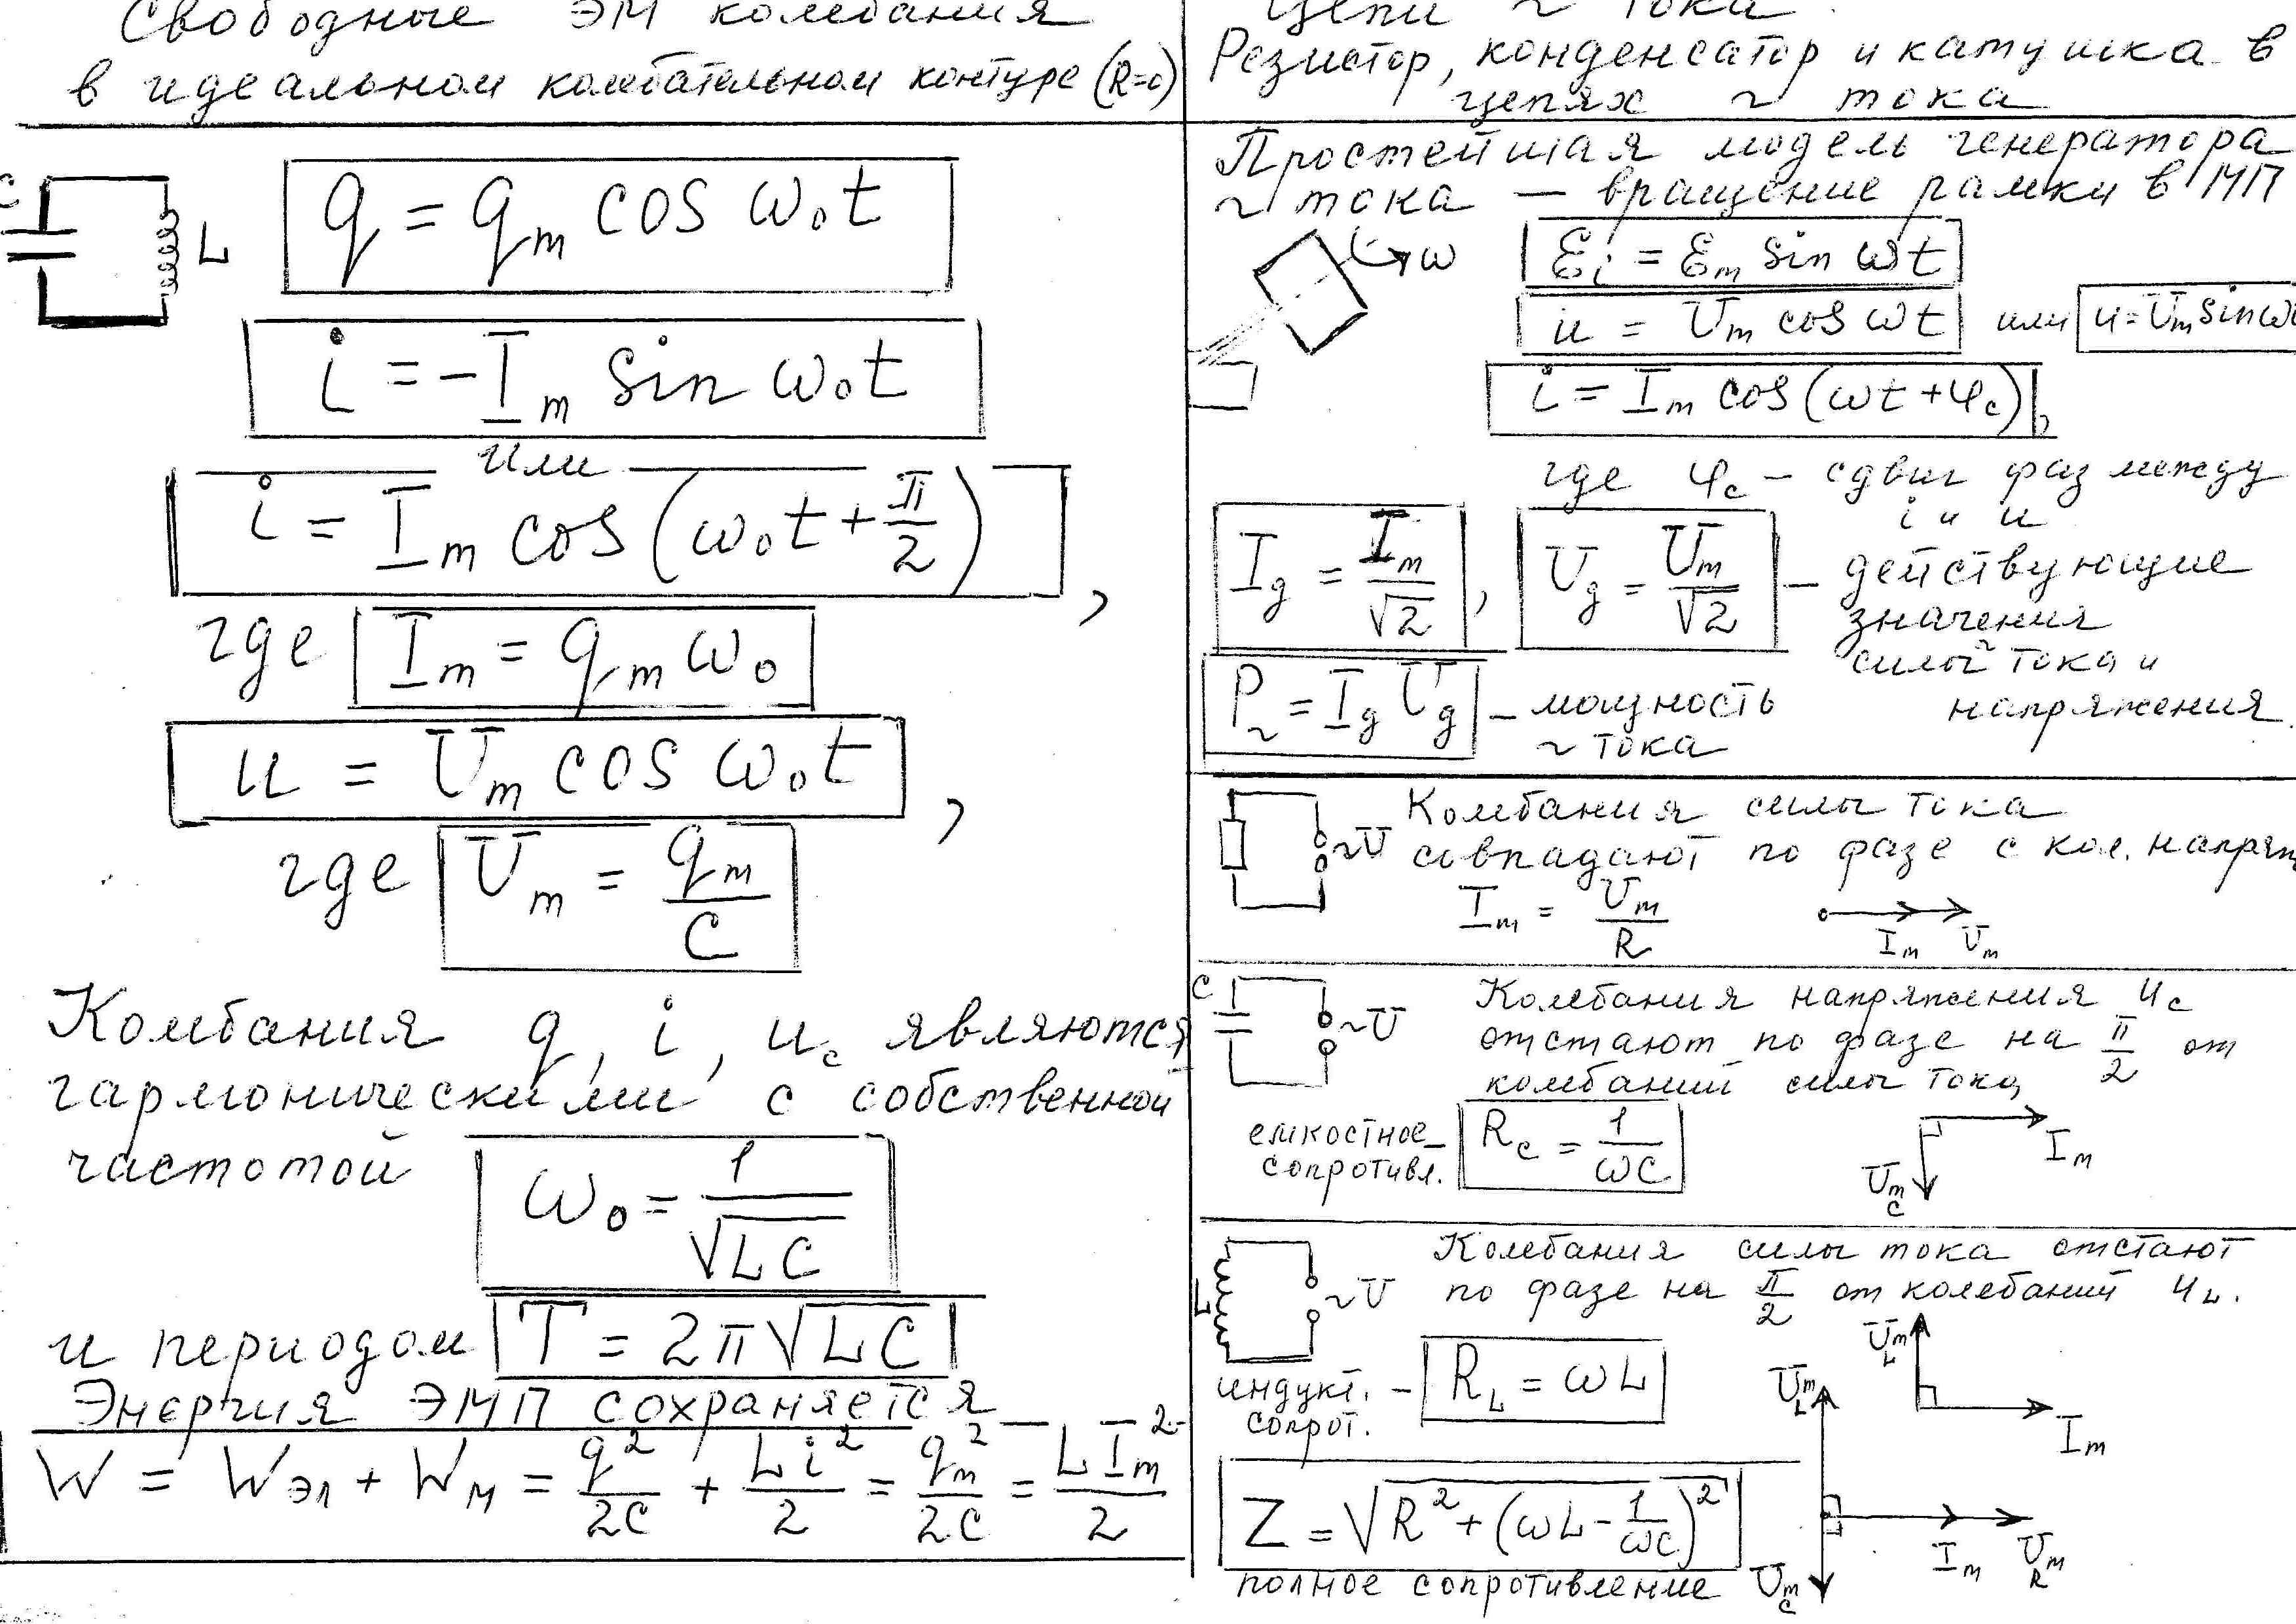 Свободные ЭМ колебания
в идеальном колебательном контуре (R=0)
C
L
q = qm cos ω₀t
i = -Im sin ω₀t
или
i = Im cos(ω₀t + π/2),
где Im = qm ω₀
u = Um cos ω₀t,
где Um = qm/C
Колебания q, i, uc являются
гармоническими с собственной
частотой ω₀ = 1/√LC
и периодом T = 2π√LC
Энергия ЭМП сохраняется
W = Wэл + Wм = q²/2C + Li²/2 = qm²/2C = LIm²/2
Цепи ~ тока.
Резистор, конденсатор и катушка в
цепях ~ тока
Простейшая модель генератора
~ тока — вращение рамки в МП
ω
Ɛi = Ɛm sin ωt
u = Um cos ωt или u = Um sin ωt
i = Im cos(ωt + φc),
где φc - сдвиг фаз между
i и u
Iд = Im/√2, Uд = Um/√2 — действующие
значения
силы ~ тока и
напряжения.
P~ = Iд Uд — мощность
~ тока
~U
Колебания силы тока
совпадают по фазе с кол. напряж
Im = Um/R
Im Um
C
~U
Колебания напряжения uc
отстают по фазе на π/2 от
колебаний силы тока
емкостное
сопротивл. — Rc = 1/ωC
Im
Umc
L
~U
Колебания силы тока отстают
по фазе на π/2 от колебаний uL.
индукт.
сопрот. - RL = ωL
UmL
Im
UmL
Z = √R² + (ωL - 1/ωC)²
полное сопротивление
Im UmR
Umc